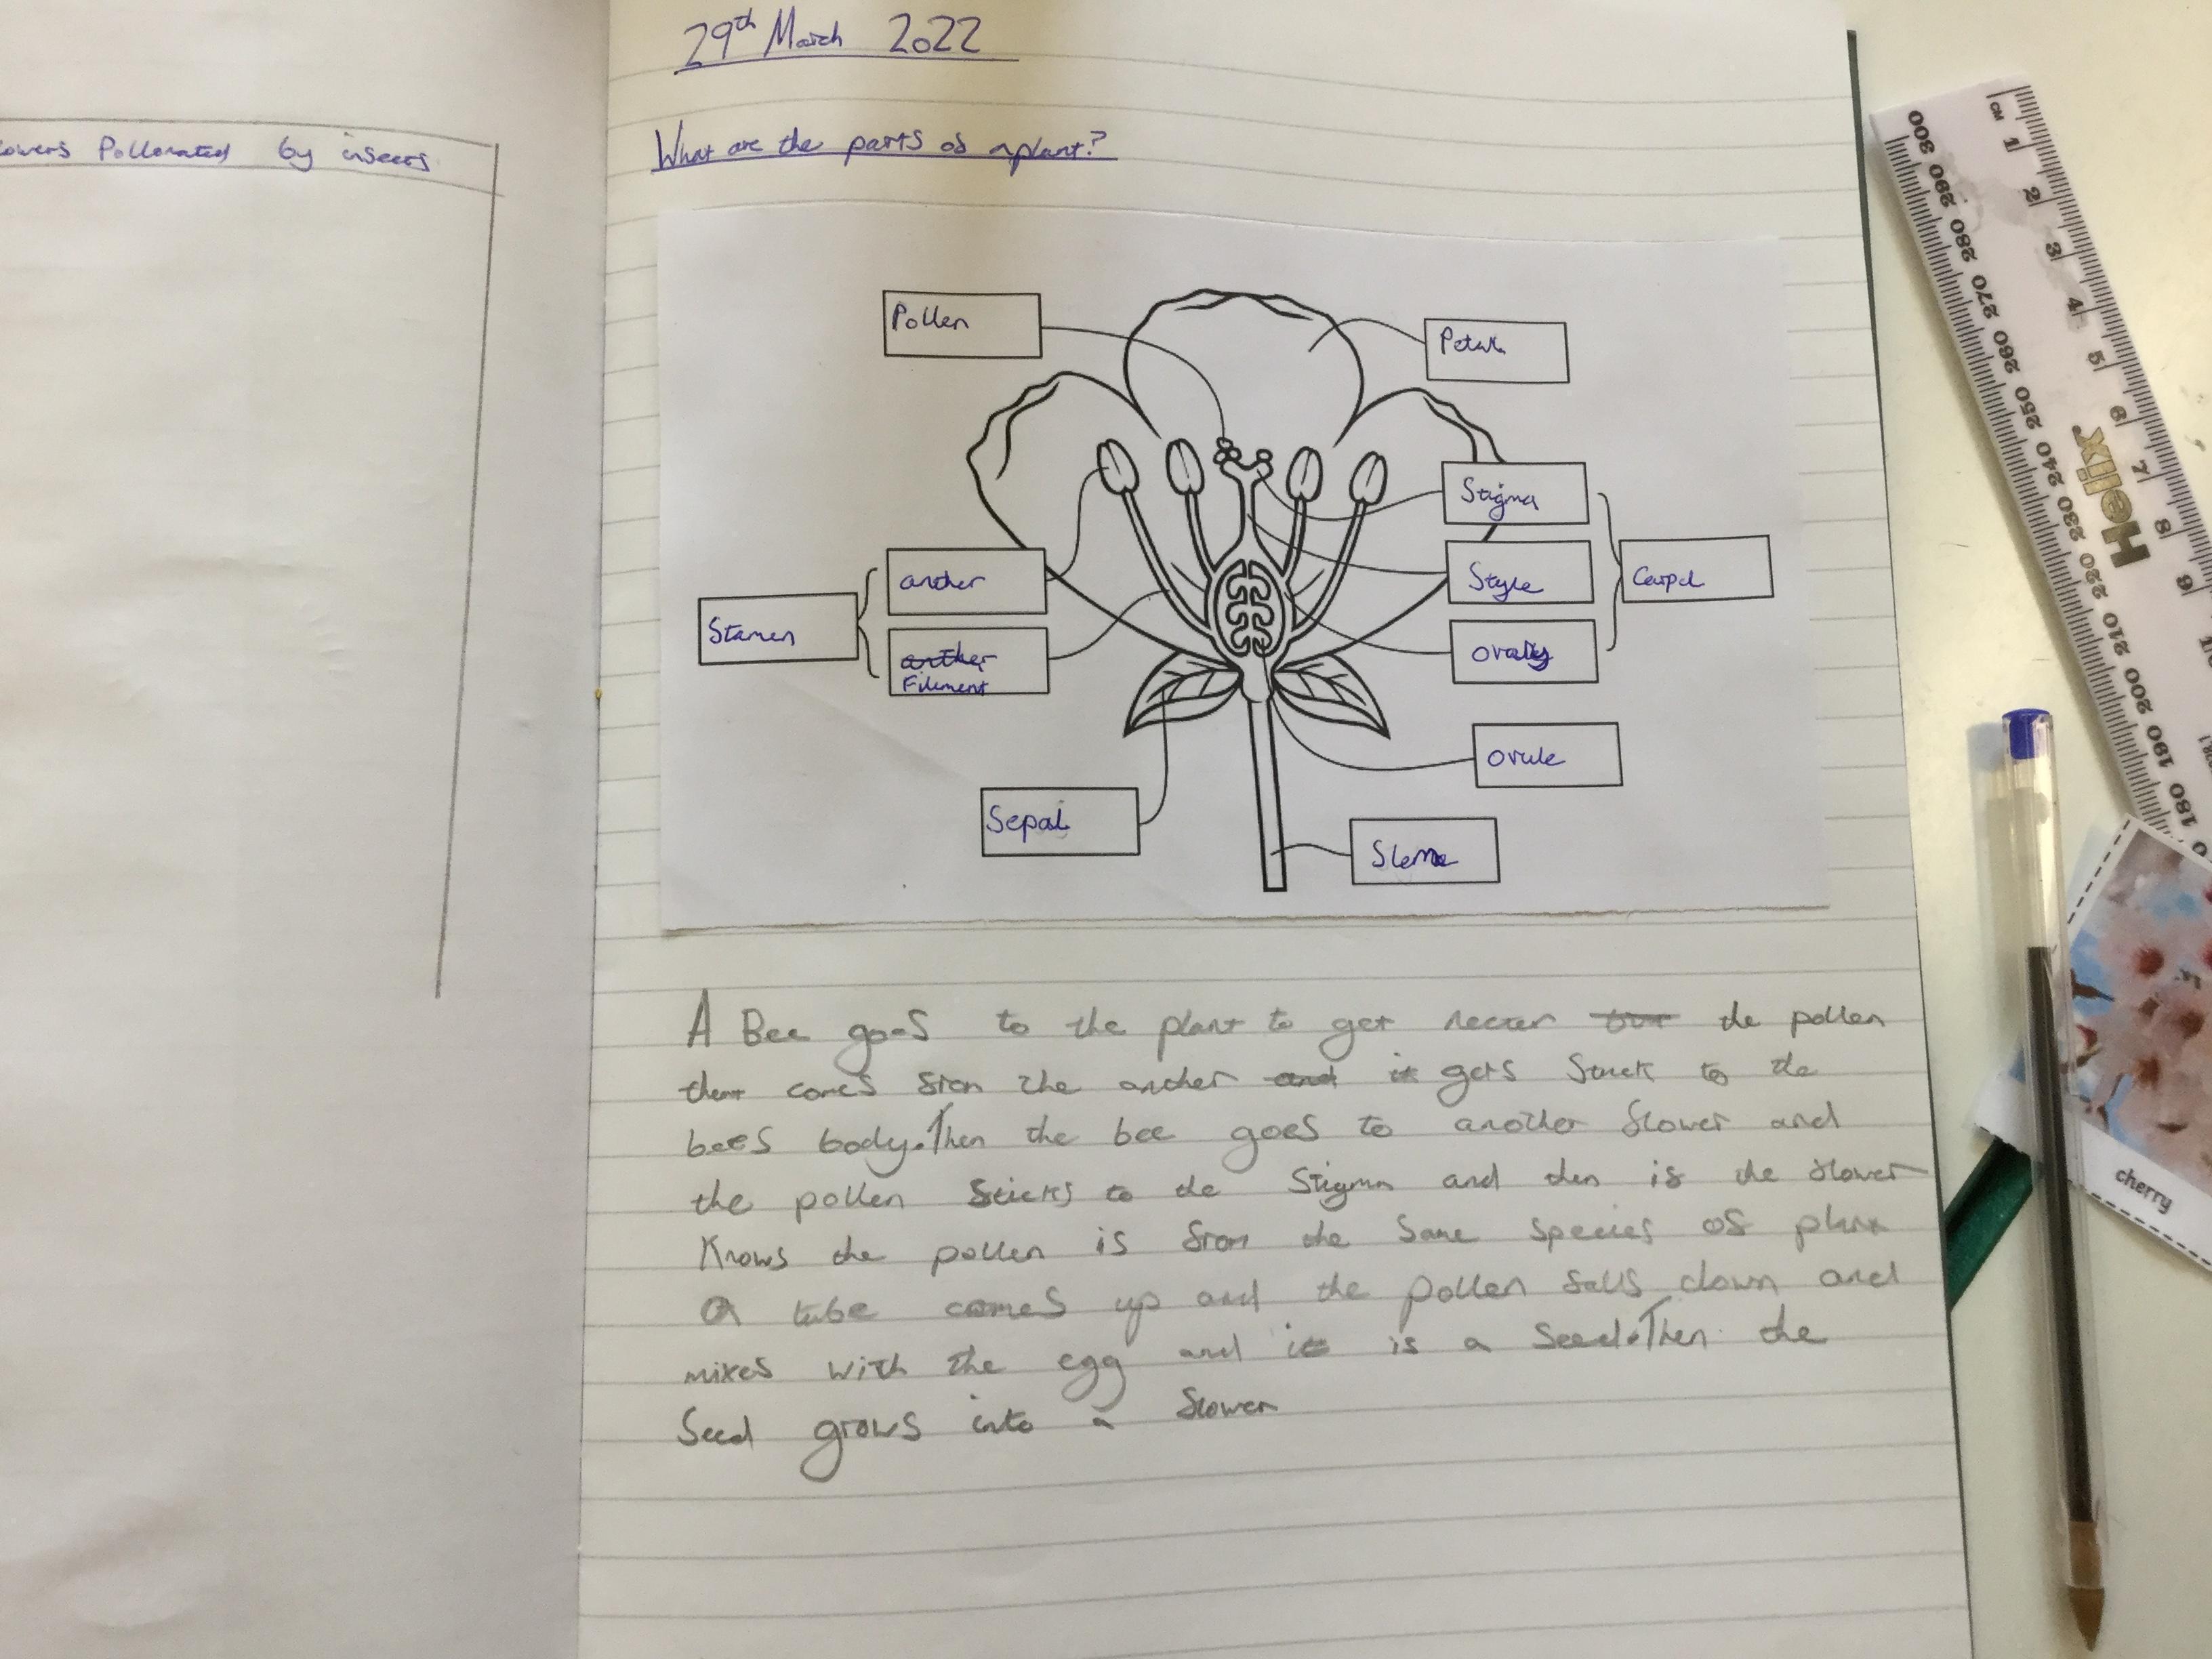 29th March 2022
What are the parts of a plant?
lowers Pollonated by insects
Pollen
Petal
Stigma
anther
Style
Carpel
Stamen
anther
Filiment
ovary
ovule
Sepal
Stem
A Bee goes to the plant to get necter but the pollen
then comes from the anther and it gets stuck to the
bees body. Then the bee goes to another flower and
the pollen sticks to the Stigma and then if the flower
Knows the pollen is from the same species of plant
a tube comes up and the pollen falls down and
mixes with the egg and it is a seed. Then the
Seed grows into a flower
CM 1 2 3 4 5 6 7 8 9
300 290 280 270 260 250 240 230 220 210 200 190 180
Helix
cherry